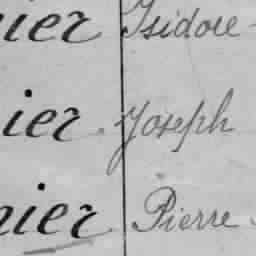 nier Isidore
ier Joseph
nier Pierre